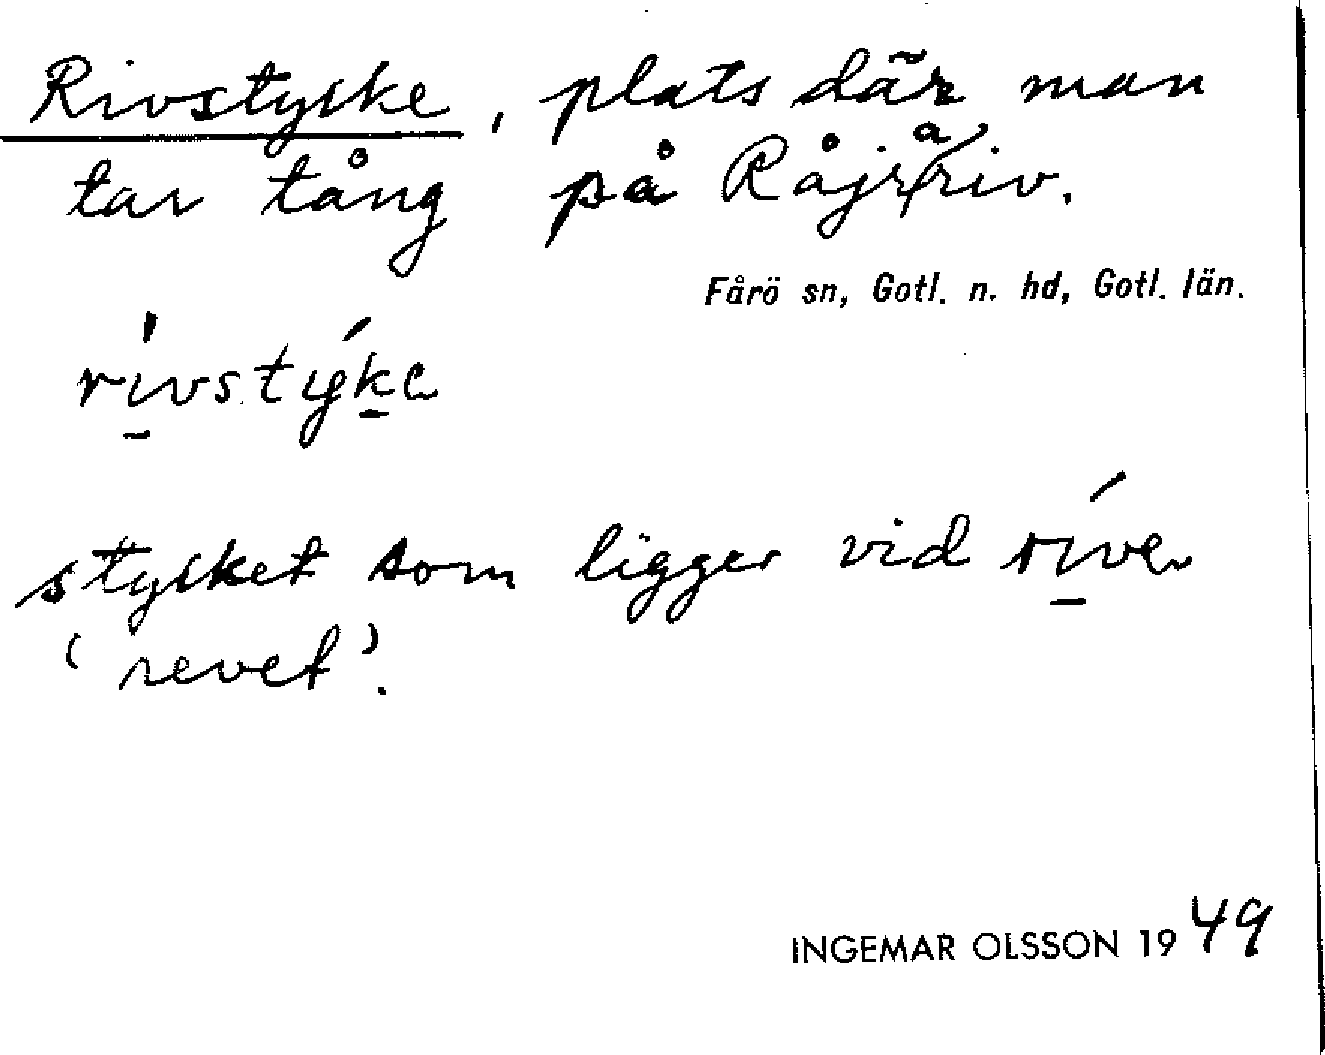 Rivstycke, plats där man
tar tång på Råjrariv.
Fårö sn, Gotl. n. hd, Gotl. län.
ri̱vstýḵe
stycket som ligger vid rí̱ve
'revet'.
INGEMAR OLSSON 1949